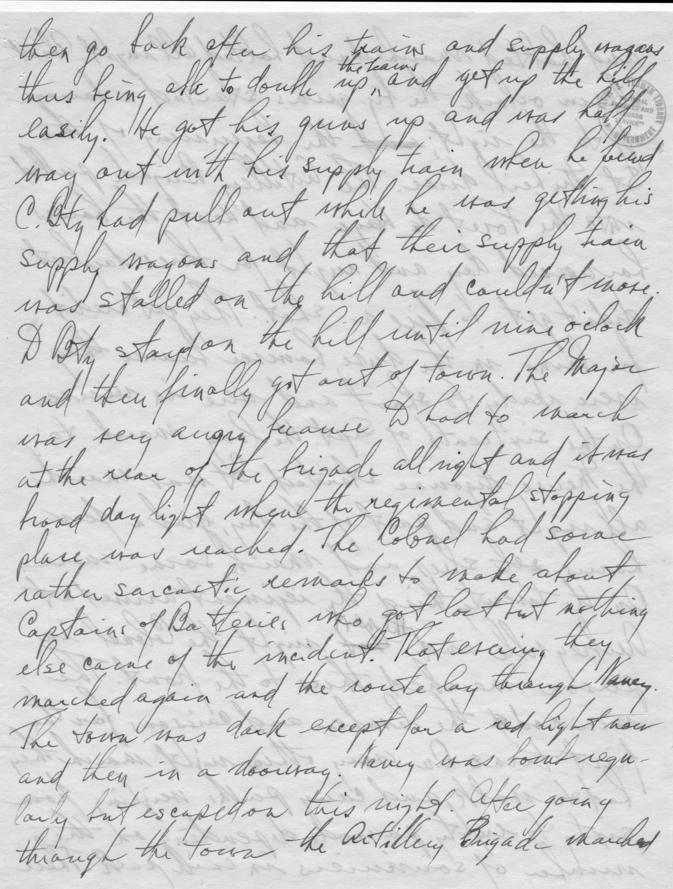 then go back after his trains and supply wagons
thus being able to double up the teams, and get up the hill
easily. He got his guns up and was half
way out with his supply train when he found
C. Bty had pull out while he was getting his
supply wagons and that their supply train
was stalled on the hill and couldn't move.
D Bty stayed on the hill until nine oclock
and then finally got out of town. The Major
was very angry because D had to march
at the rear of the brigade all right and it was
broad day light when the regimental stopping
place was reached. The Colonel had some
rather sarcastic remarks to make about
Captains of Batteries who got lost but nothing
else came of the incident. That evening they
marched again and the route lay through Nancy.
The town was dark except for a red light now
and then in a doorway. Nancy was bomt regu-
larly but escaped on this night. After going
through the town the Artillery Brigade marched